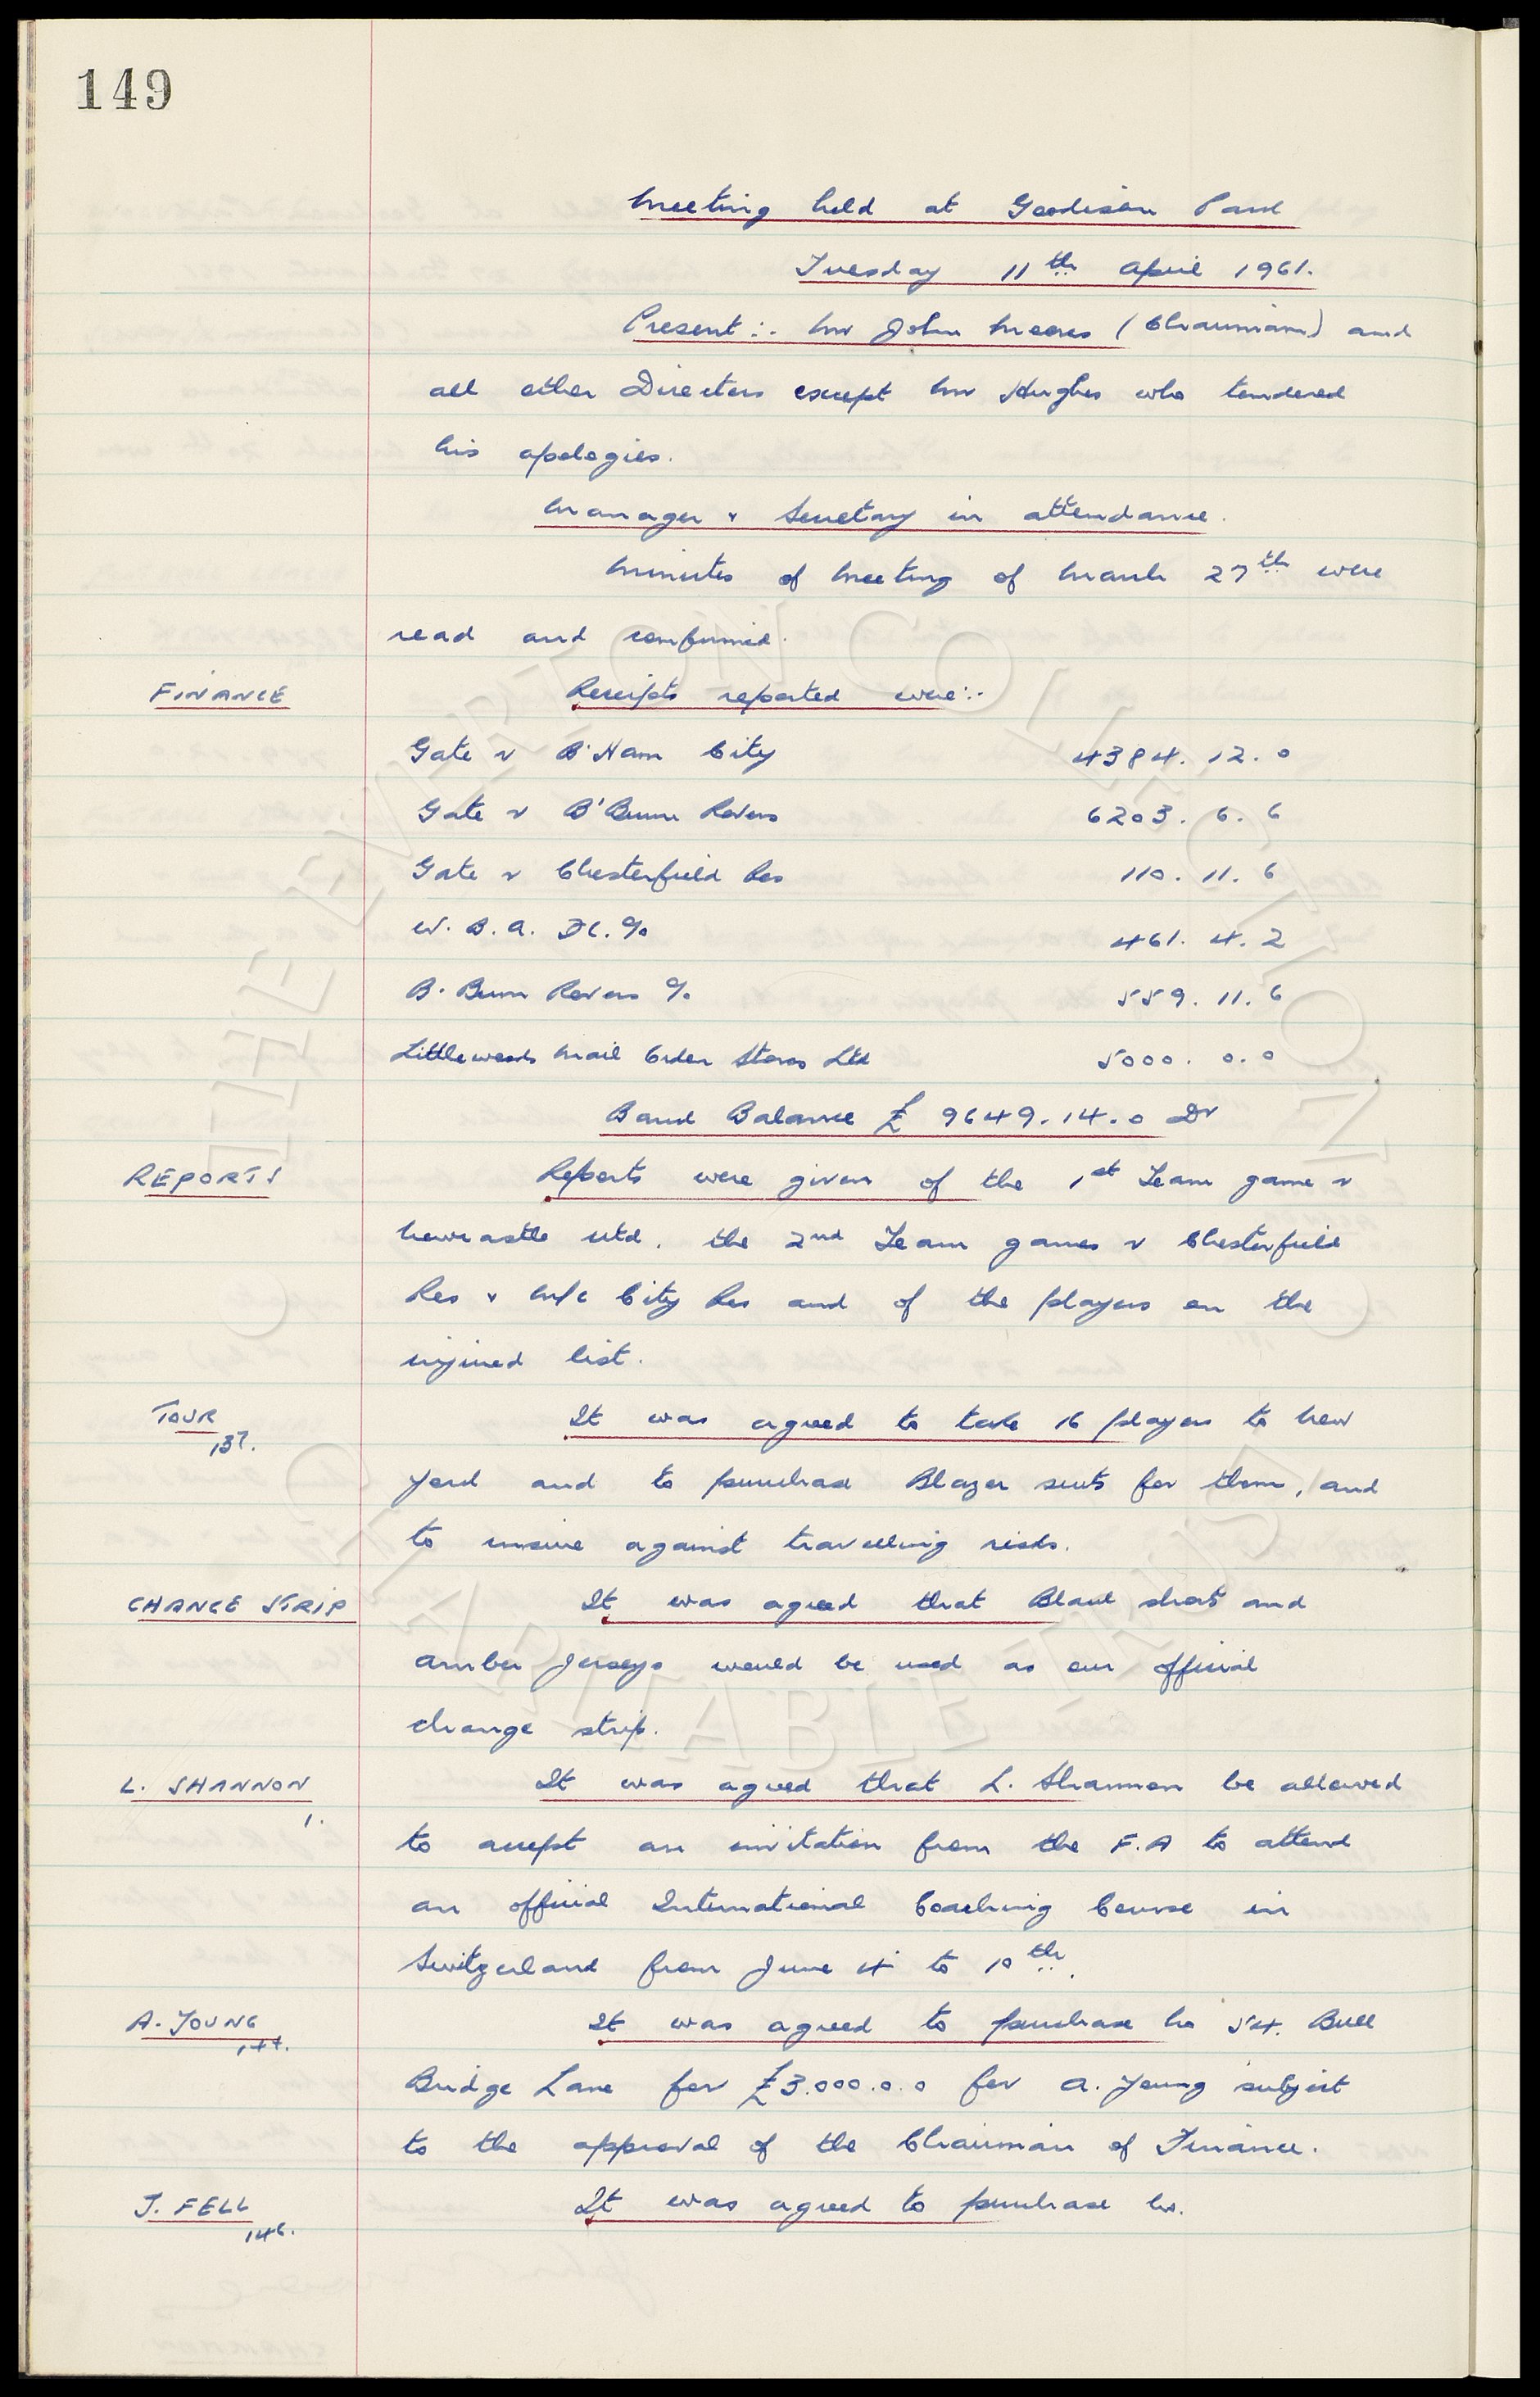 149
Meeting held at Goodison Park
Tuesday 11th April 1961.
Present:- Mr John Moores (Chairman) and
all other Directors except Mr Hughes who tendered
his apologies.
Manager & Secretary in attendance.
Minutes of Meeting of March 27th were
read and confirmed.
FINANCE Receipts reported were:-
Gate v B'Ham City 4384. 12. 0
Gate v B'Burn Rovers 6203. 6. 6
Gate v Chesterfield Res 110. 11. 6
W. B. A. % 461. 4. 2
B. Burn Rovers % 559. 11. 6
Littlewoods Mail Order Stores Ltd 5000. 0. 0
Bank Balance £ 9649. 14. 0 Dr
REPORTS Reports were given of the 1st Team game v
Newcastle Utd. the 2nd Team games v Chesterfield
Res & M/c City Res and of the players on the
injured list.
TOUR It was agreed to take 16 players to New
137.
York and to purchase Blazer suits for them, and
to insure against travelling risks.
CHANGE STRIP It was agreed that Black shorts and
amber jerseys would be used as our official
change strip.
L. SHANNON It was agreed that L. Shannon be allowed
1.
to accept an invitation from the F.A to attend
an official International Coaching Course in
Switzerland from June 4 to 10th.
A. YOUNG It was agreed to purchase No 54. Bull
144.
Bridge Lane for £3.000.0.0 for A. Young subject
to the approval of the Chairman of Finance.
J. FELL It was agreed to purchase No.
146.
THE EVERTON COLLECTION
CHARITABLE TRUST